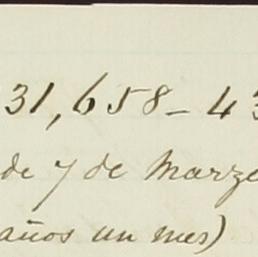 31,658-43
de 7 de Marzo
años un mes)